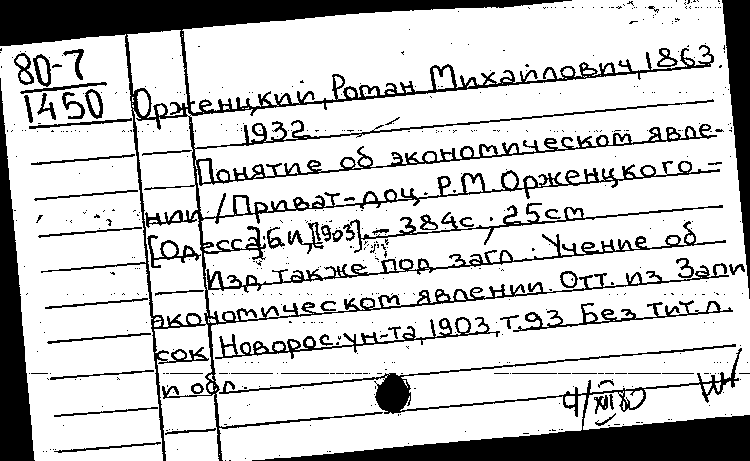 80-7
1450
Орженцкий, Роман Михайлович, 1863
1932.
Понятие об экономическом явле-
нии / Приват-доц. Р.М. Орженцкого. -
[Одесса]: Б.И., [1903]. - 384с.; 25см
Изд. также под загл.: Учение об
экономическом явлении. Отт. из Запи
сок Новорос. ун-та, 1903, т.93. Без тит.л.
и обл.
4/XII 80